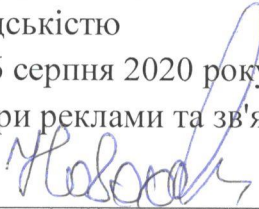 дськістю
серпня 2020 року
ри реклами та зв'я